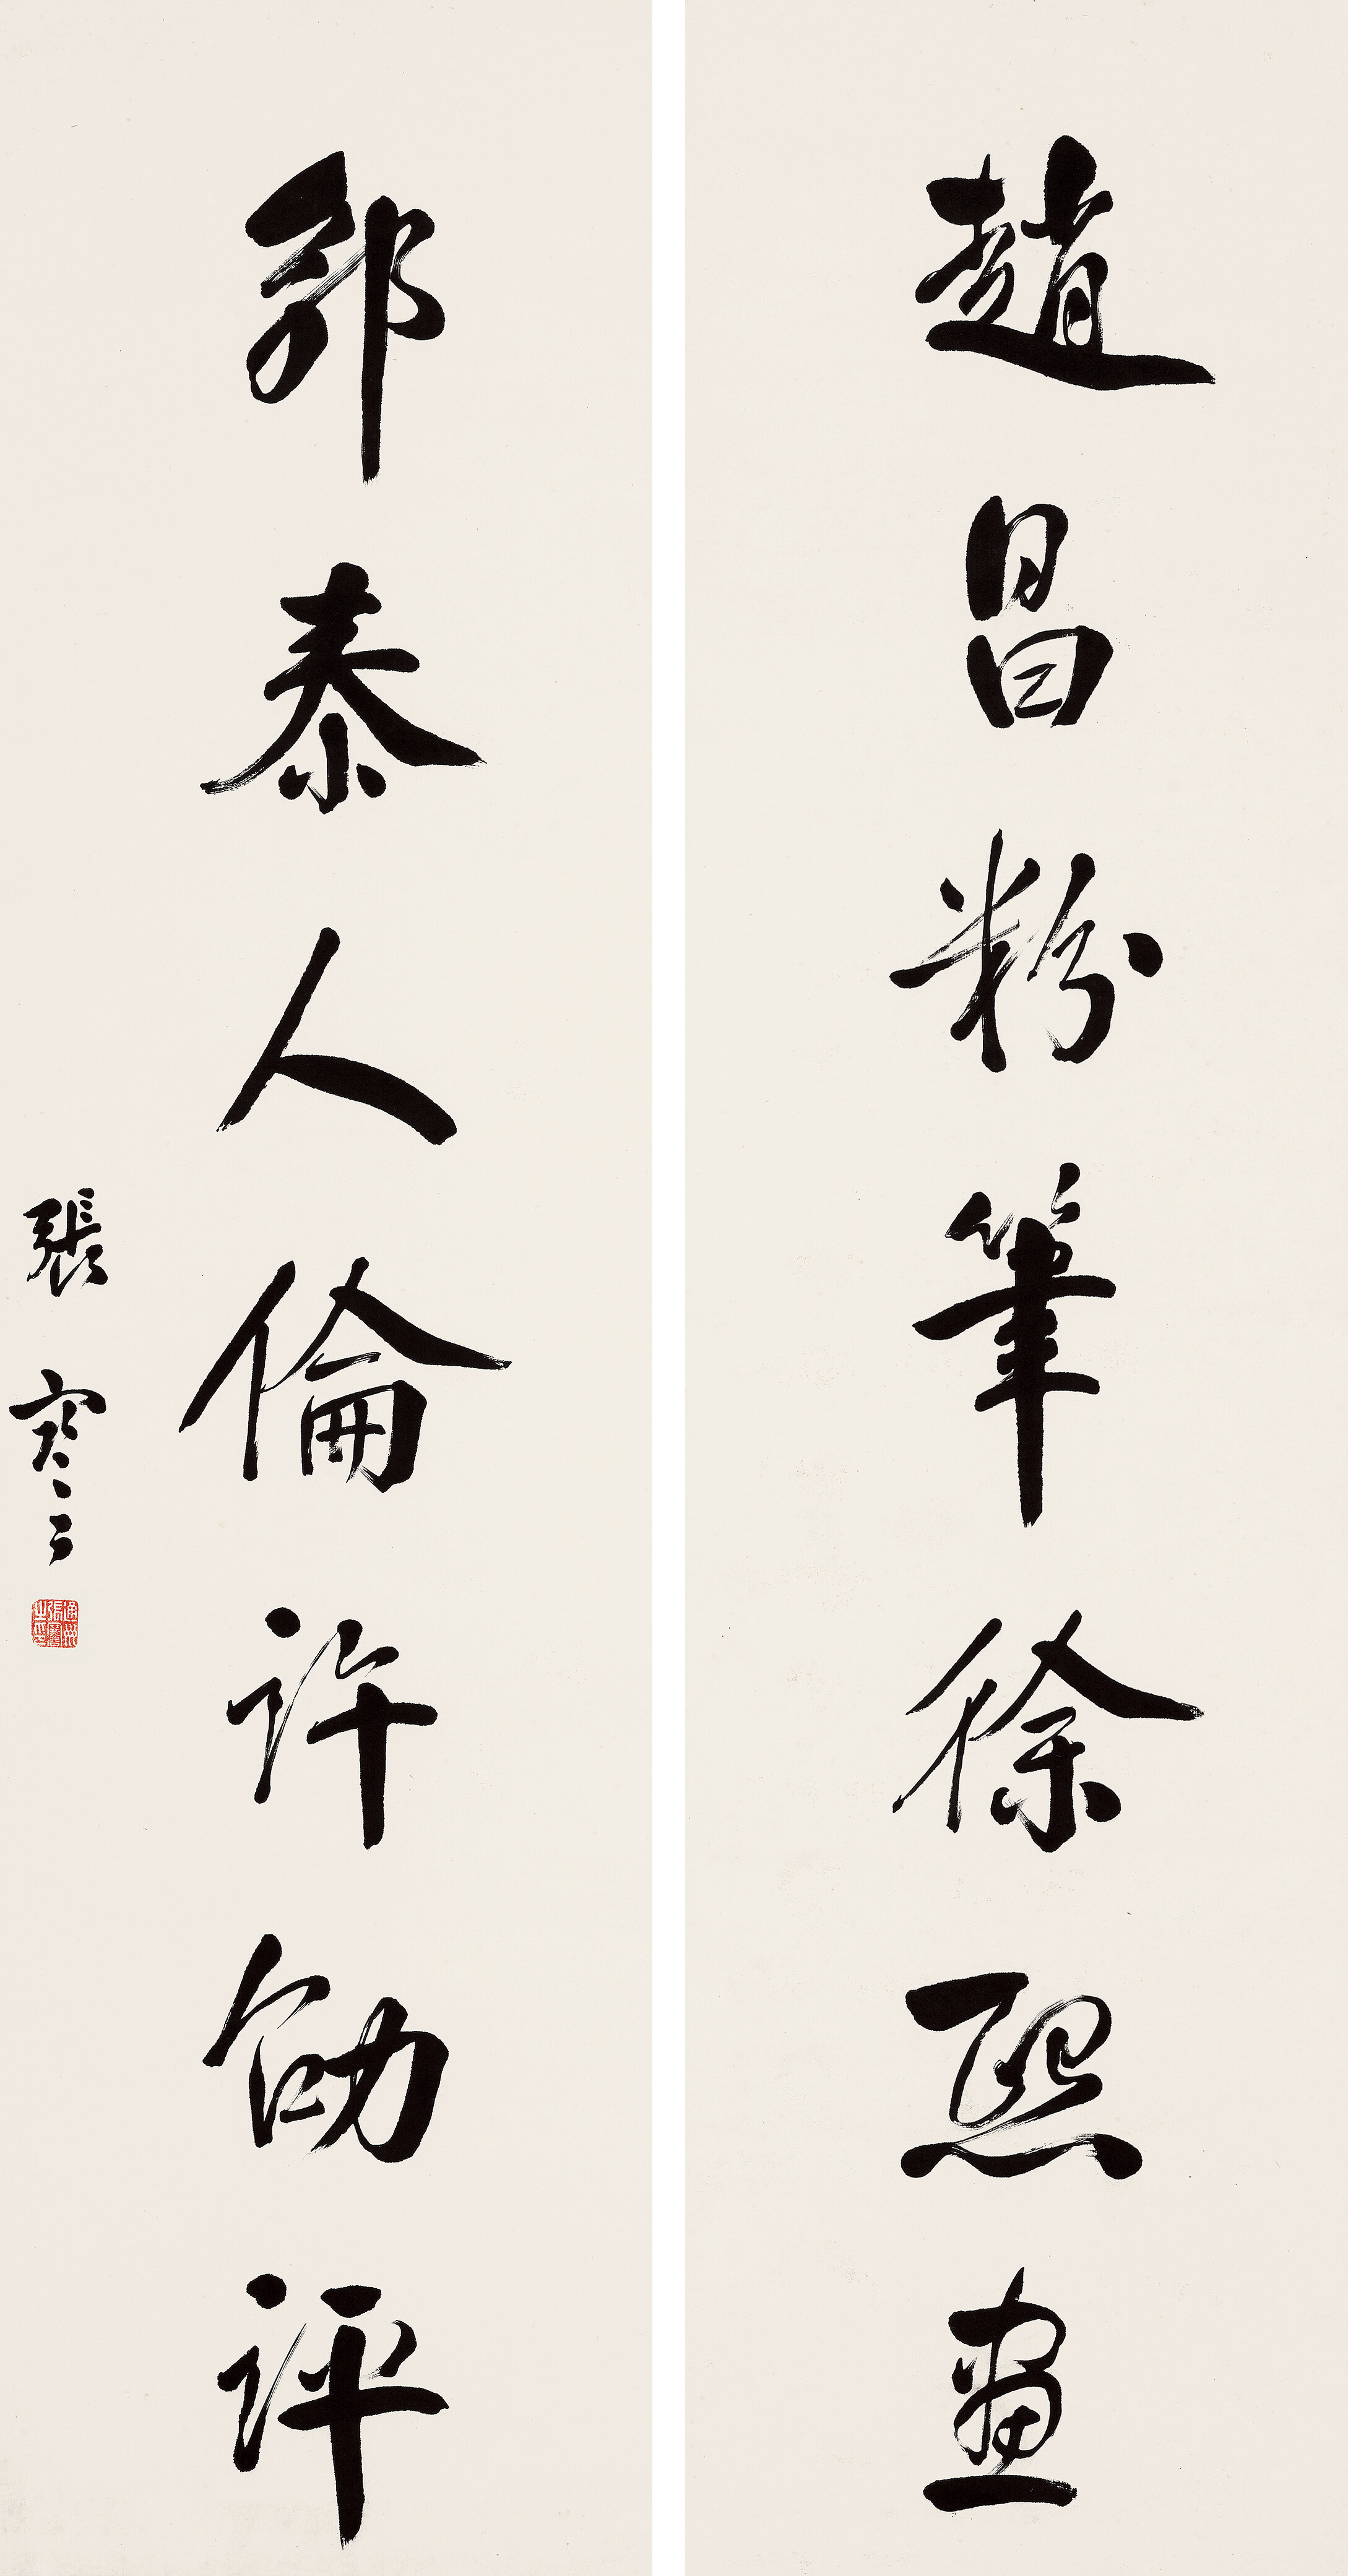 趙昌粉筆徐熙畫
郭泰人倫許劭評
張謇